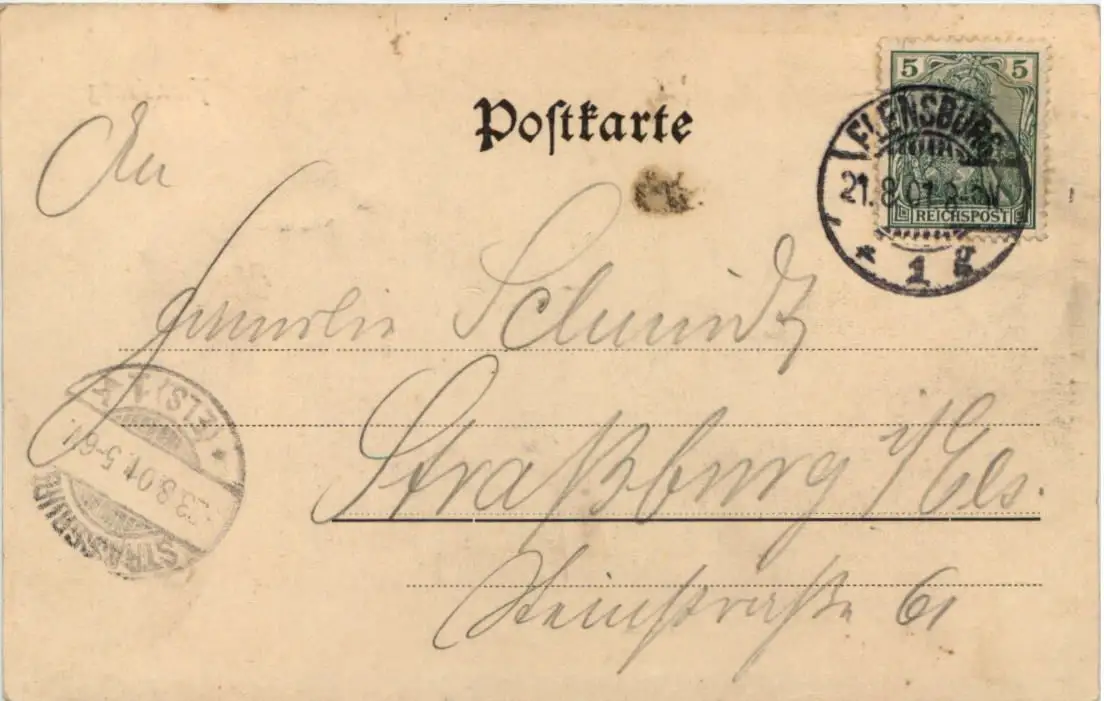 Postkarte
5 5
REICHSPOST
FLENSBURG
21.8.01.8-9V.
* 1 g
An
Familie Schmidt
Straßburg i/Els.
Steinstraße 61
STRASSBURG
23.8.01. 5-6
(ELS) 1